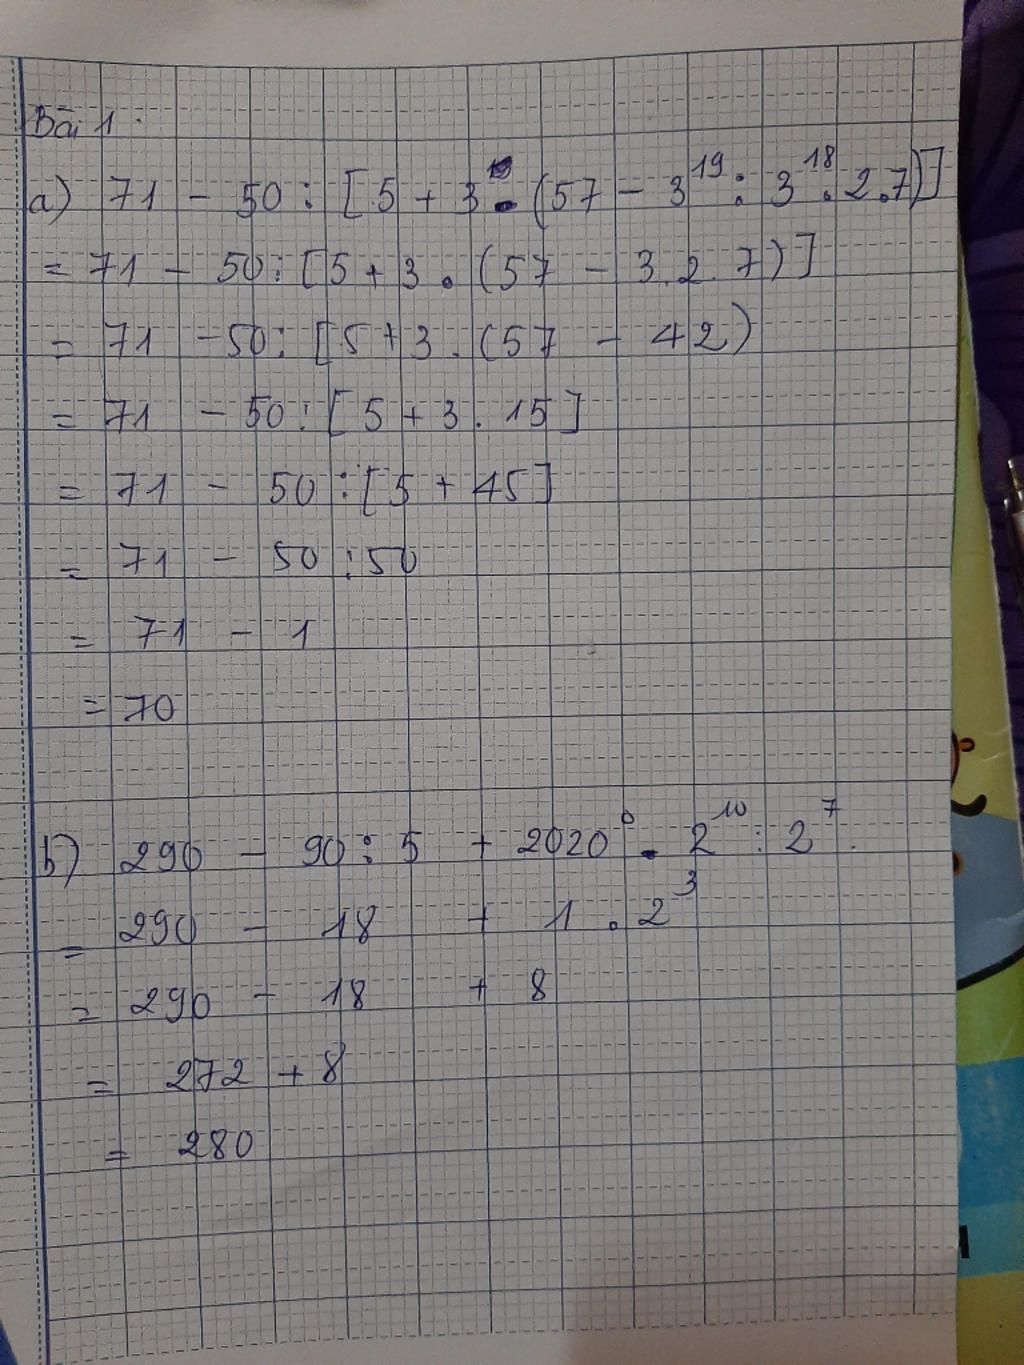 Bài 1
a) 71 - 50 : [5 + 3 . (57 - 3¹⁹ : 3¹⁸ . 2.7)]
= 71 - 50 : [5 + 3 . (57 - 3.2.7)]
= 71 - 50 : [5 + 3 . (57 - 42)
= 71 - 50 : [5 + 3 . 15]
= 71 - 50 : [5 + 45]
= 71 - 50 : 50
= 71 - 1
= 70
b) 290 - 90 : 5 + 2020⁰ . 2¹⁰ : 2⁷.
= 290 - 18 + 1 . 2³
= 290 - 18 + 8
= 272 + 8
= 280